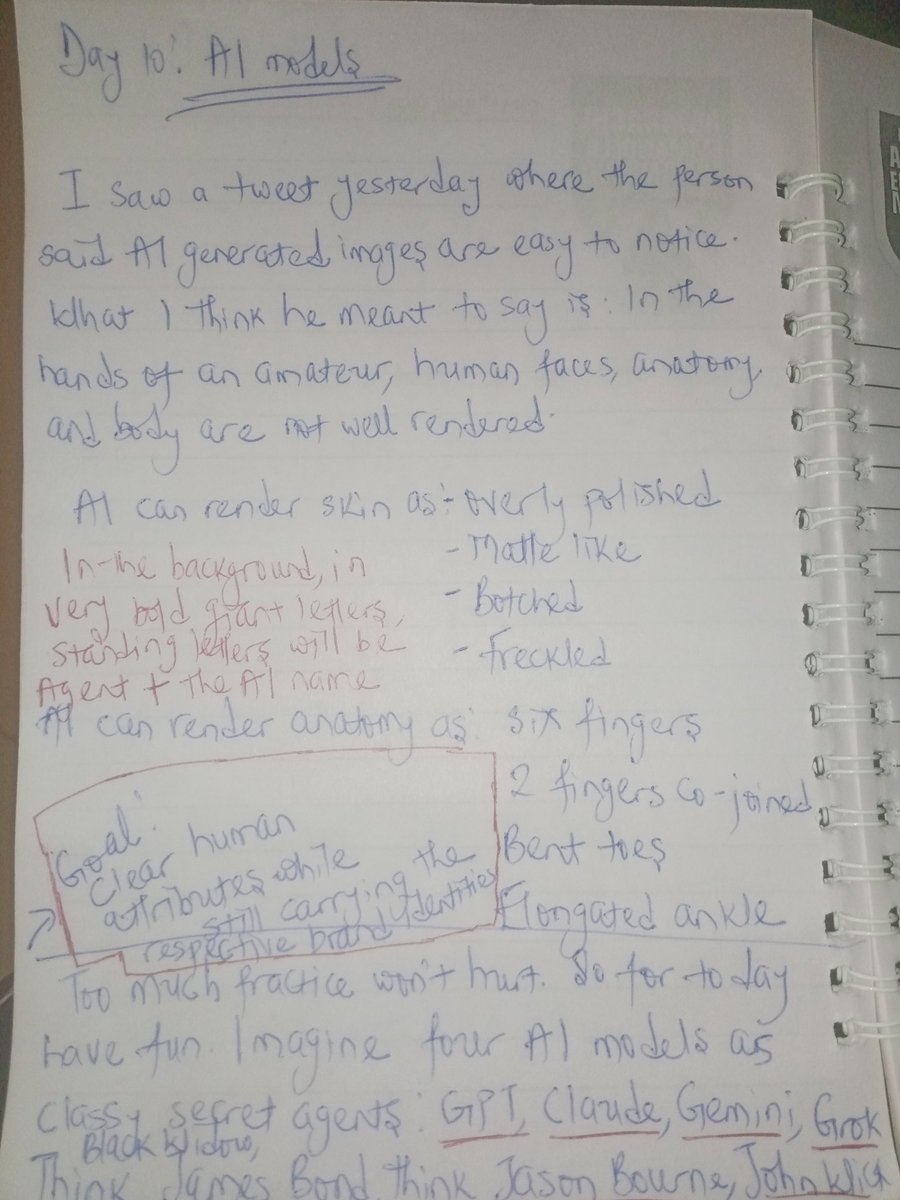 Day 10: AI models
I saw a tweet yesterday where the person
said AI generated images are easy to notice.
What I think he meant to say is: In the
hands of an amateur, human faces, anatomy,
and body are not well rendered.
AI can render skin as:- overly polished
- Matte like
- Botched
- Freckled
In the background, in
very bold giant letters,
standing letters will be
Agent + the AI name
AI can render anatomy as: six fingers
2 fingers co-joined
Bent toes
Elongated ankle
Goal:
Clear human
attributes while
still carrying the
respective brand identities
Too much practice won't hurt. So for today
have fun. Imagine four AI models as
classy secret agents: GPT, Claude, Gemini, Grok
Black Widow,
Think James Bond, think Jason Bourne, John Wick
A
E
N